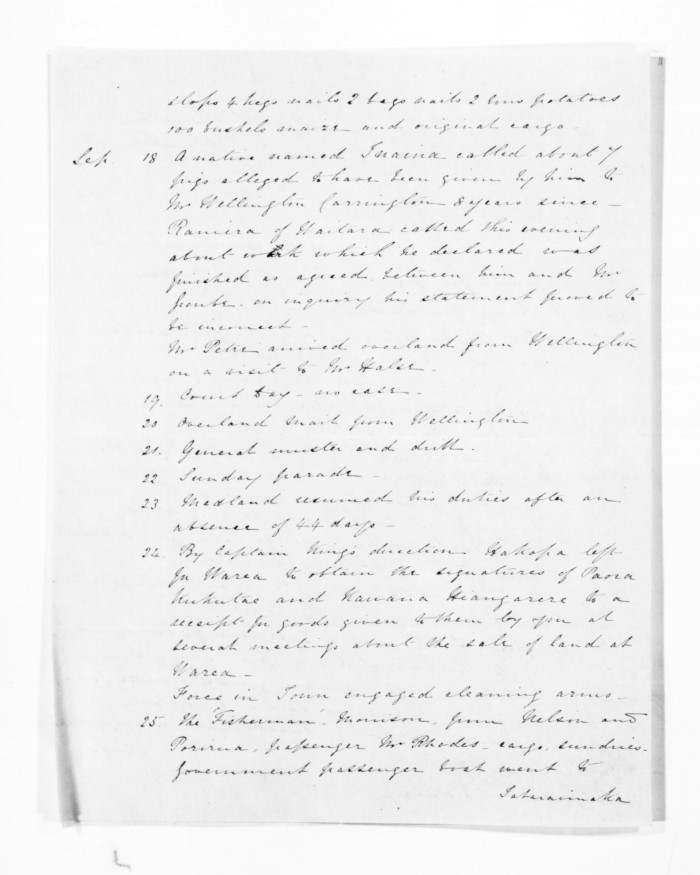 slops 4 kegs nails 2 bags nails 2 tons potatoes
100 bushels maize and original cargo.
Sep. 18 A native named Inaina called about 7
pigs alleged to have been given by him to
Mr Wellington Carrington 8 years since —
Raniera of Waitara called this evening
about work which he declared was
finished as agreed between him and Mr
on inquiry his statement proved to
be incorrect —
Mr Petre arrived overland from Wellington
on a visit to Mr Halse.
19. Court Day — no case.
20 Overland Mail from Wellington
21. General muster and drill.
22. Sunday parade —
23. Medland resumed his duties after an
absence of 44 days —
24. By Captain King's direction Hakopa left
for Warea to obtain the signatures of Paora
Kukutai and Nawana Hiangarere to a
receipt for goods given to them by you at
several meetings about the sale of land at
Warea —
Force in Town engaged cleaning arms —
25. The 'Fisherman', Morrison, from Nelson and
Porirua, passenger Mr Rhodes — cargo, sundries.
Government passenger boat went to
Tataraimaka